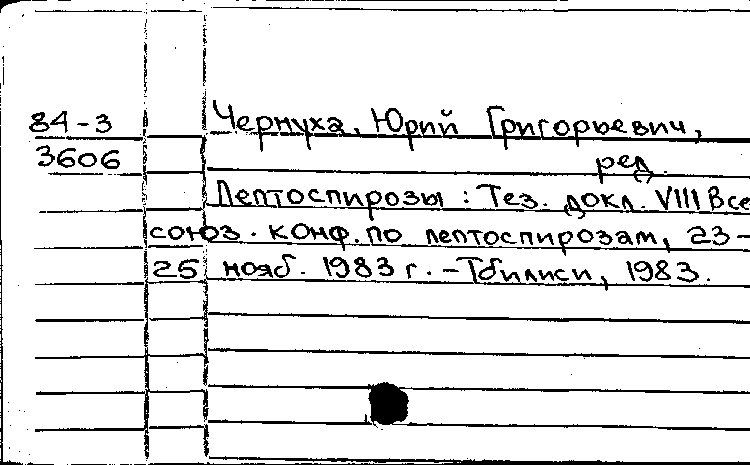 84-3 Чернуха, Юрий Григорьевич,
3606 ред.
Лептоспирозы : Тез. докл. VIII Все
союз. конф. по лептоспирозам, 23-
25 нояб. 1983 г. - Тбилиси, 1983.